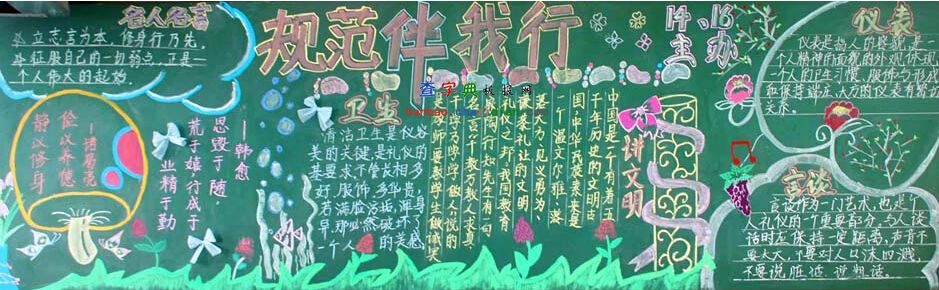 名人名言
立志言为本,修身行乃先。
征服自己的一切弱点,正是一
个人伟大的起始。
静以修身
俭以养德
—诸葛亮
业精于勤
荒于嬉行成于
思毁于随。
—韩愈
规范伴我行
14、18
主办
查字典板报网
卫生
清洁卫生是仪容
美的关键,是礼仪的
基要求不管长相多
好,服饰多华贵,
若满脸污垢,浑身
那必然破坏了
一个人的美感
中国是一个有着五
千年历史的文明古
国,中华民族素来是
一个温文尔雅,落
落大方,见义勇为、
谦恭礼让的文明
礼仪之邦,我国教育
家陶行知先生有一句
名言千教万教,教人求真,
千学万学,学做人,说的
是老师要教学生做诚实
讲文明
仪表
仪表是指人的容貌,是一
个人精神的面貌的外观体现,
一个人的卫生习惯、服饰与形成
和保持端庄、大方的仪表有密切
关系。
言谈
言谈作为一门艺术,也是个
人礼仪的一个重要部分。与人谈
话时应保持一定距离,声音不
要太大,不要对人口沫四溅,
不要说脏话、说粗话。